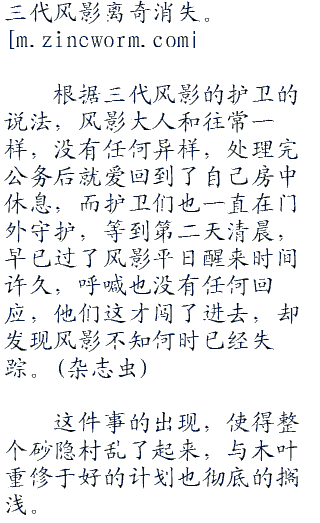 三代风影离奇消失。
[m.zincworm.com]
根据三代风影的护卫的
说法，风影大人和往常一
样，没有任何异样，处理完
公务后就爱回到了自己房中
休息，而护卫们也一直在门
外守护，等到第二天清晨，
早已过了风影平日醒来时间
许久，呼喊也没有任何回
应，他们这才闯了进去，却
发现风影不知何时已经失
踪。(杂志虫)
这件事的出现，使得整
个砂隐村乱了起来，与木叶
重修于好的计划也彻底的搁
浅。